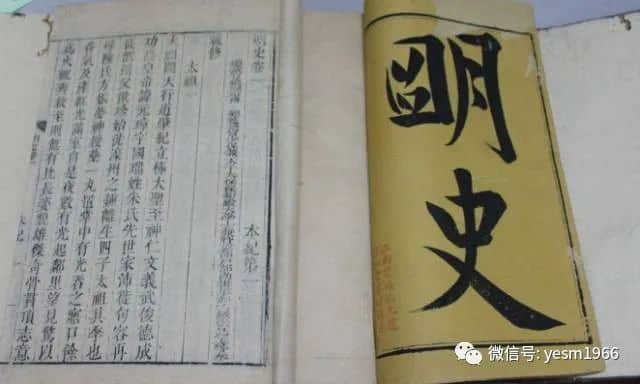 明史
明史卷一 本紀第一
敕修
太祖一
太祖開天行道肇紀立極大聖至神仁文義武俊德成
功高皇帝諱元璋字國瑞姓朱氏先世家沛徙句容再
徙泗州父世珍始徙濠州之鍾離生四子太祖其季也
母陳氏方娠夢神授藥一丸置掌中有光吞之寤口餘
香氣及產紅光滿室自是夜數有光起鄰里望見驚以
為火輒奔救至則無有比長姿貌雄傑奇骨貫頂志意
微信号: yesm1966